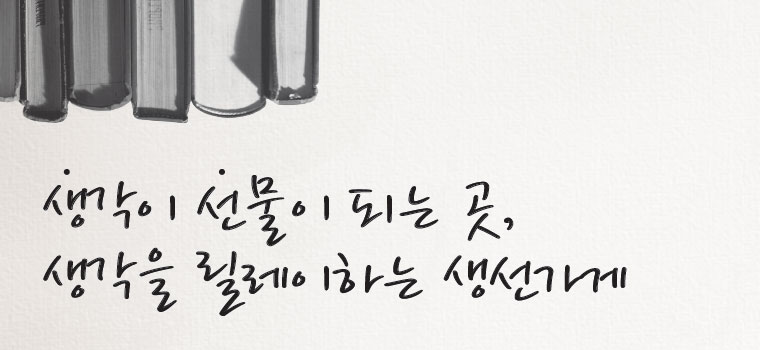 생각이 선물이 되는 곳,
생각을 릴레이하는 생선가게